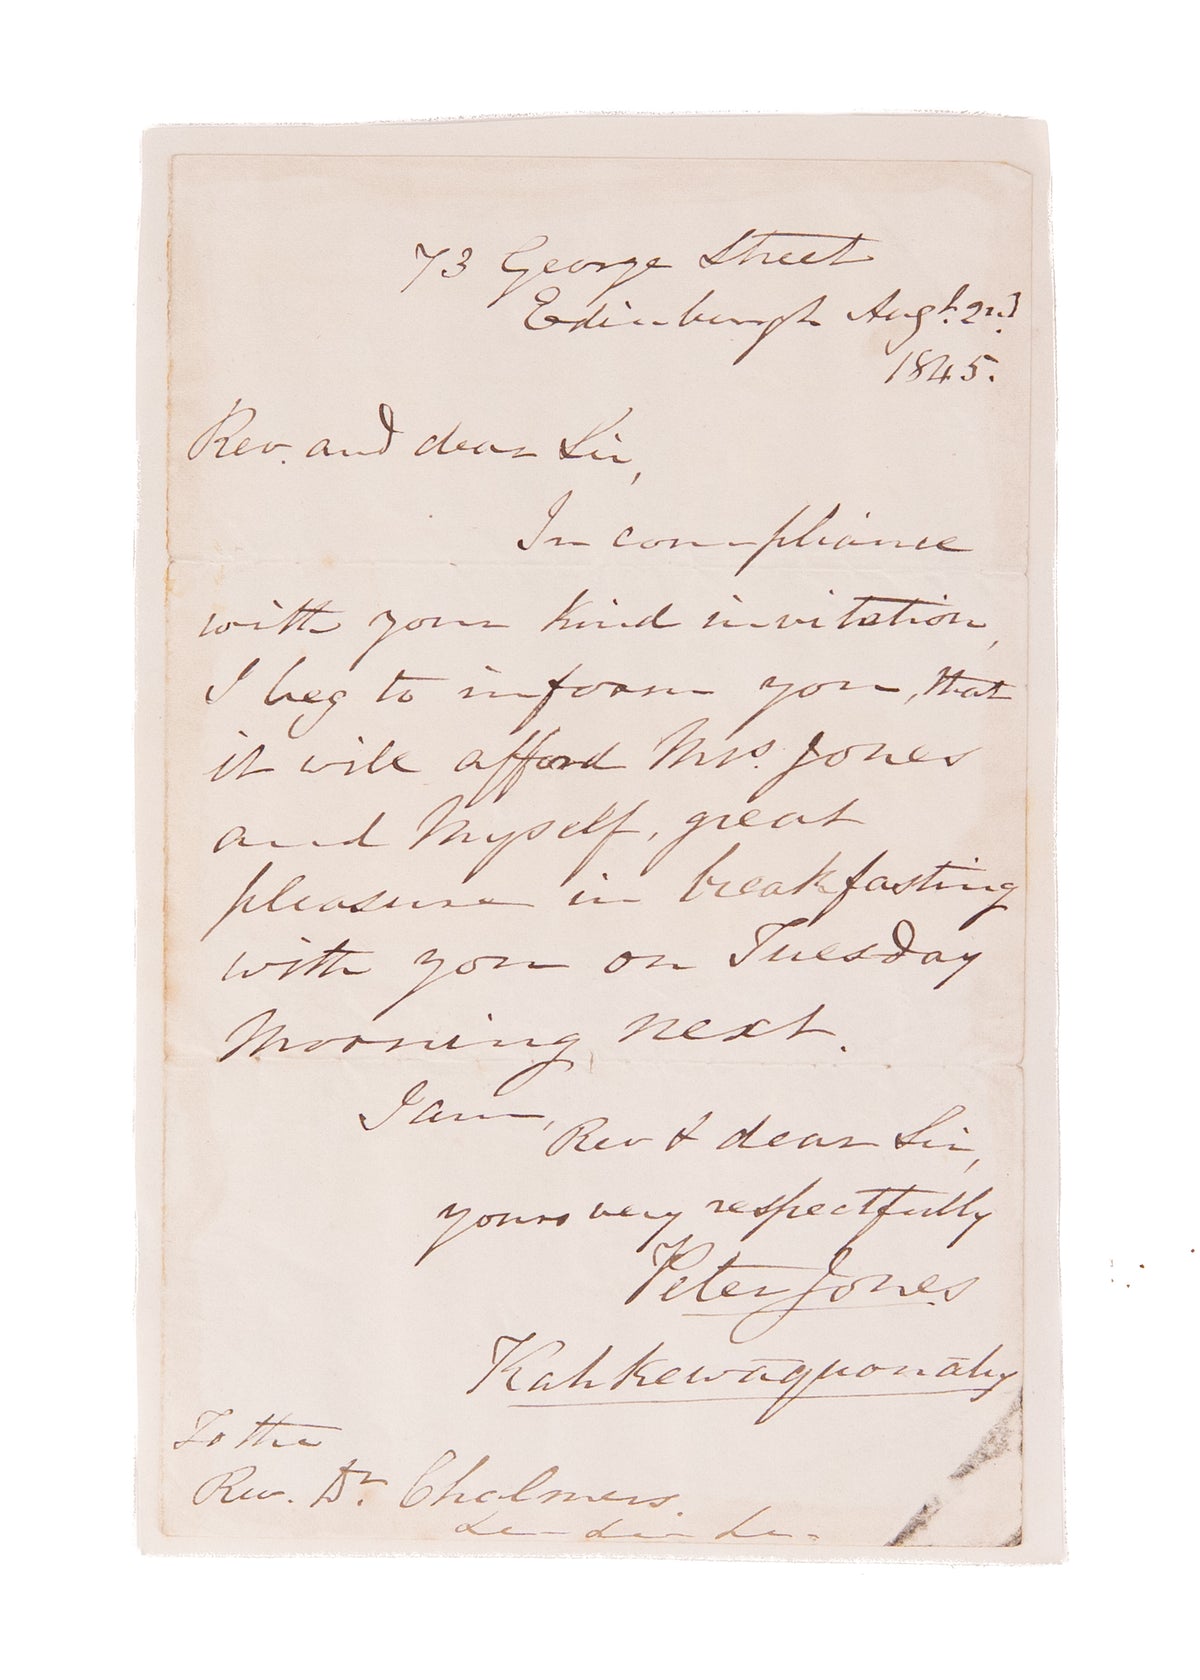 73 George Street
Edinburgh Augt. 2nd.
1845.
Rev. and dear Sir,
In compliance
with your kind invitation,
I beg to inform you, that
it will afford Mrs. Jones
and Myself, great
pleasure in breakfasting
with you on Tuesday
Morning next.
I am,
Rev & dear Sir,
yours very respectfully
Peter Jones
Kahkewāquonāby
To the
Rev. Dr. Chalmers